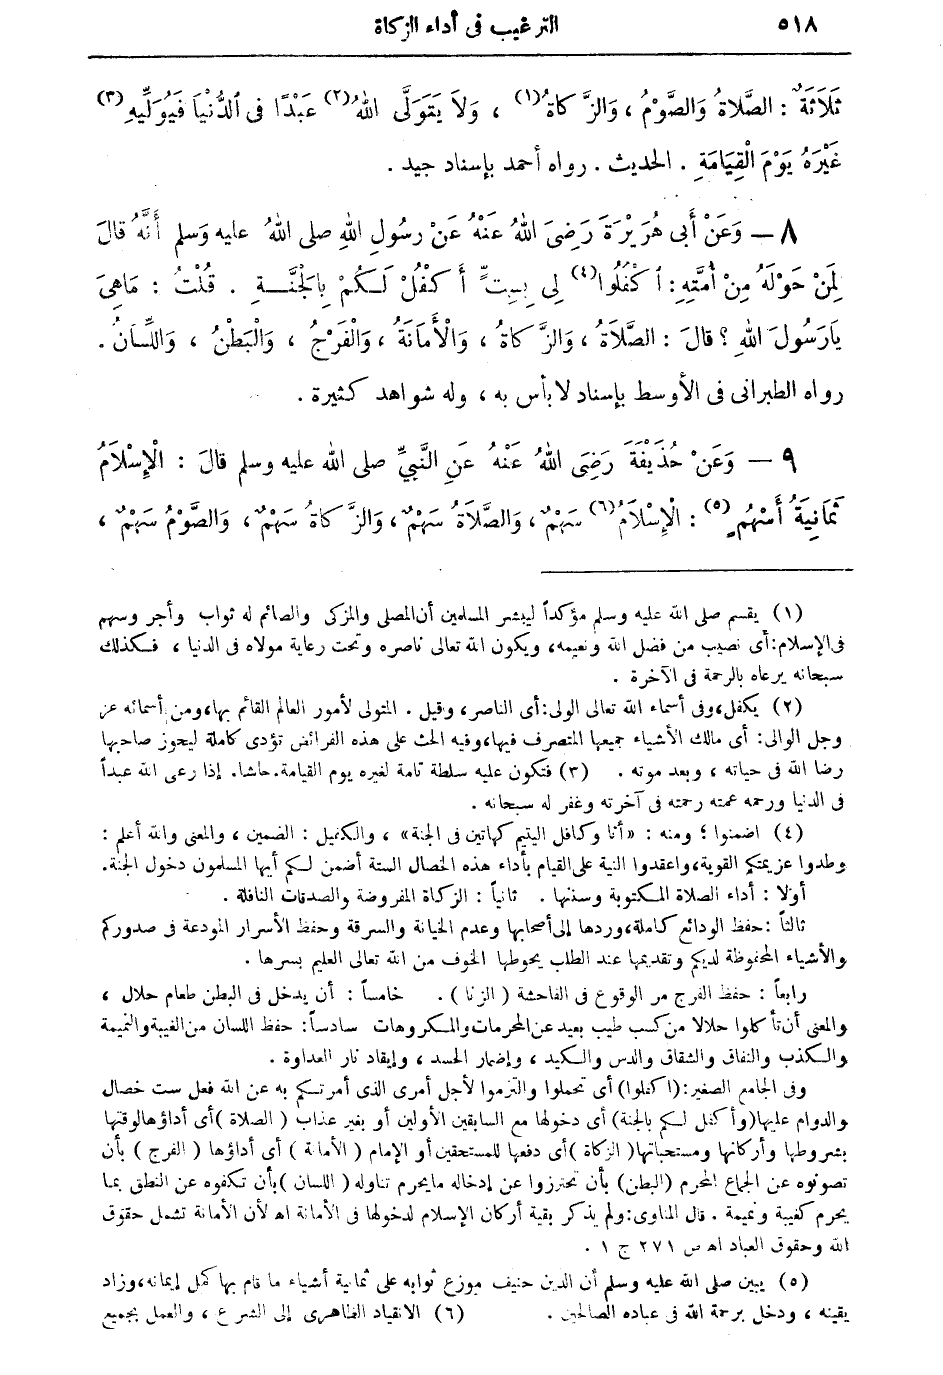 ٥١٨
الترغيب فى أداء الزكاة
ثَلَاثَةٌ : الصَّلَاةُ وَالصَّوْمُ ، وَالزَّكَاةُ(١) ، وَلَا يَتَوَلَّى اللهُ(٢) عَبْدًا فى الدُّنْيَا فَيُوَلِّيهِ(٣)
غَيْرَهُ يَوْمَ الْقِيَامَةِ . الحديث . رواه أحمد بإسناد جيد .
٨ — وَعَنْ أَبى هُرَيْرَةَ رَضِىَ اللهُ عَنْهُ عَنْ رسُولِ اللهِ صلى اللهُ عليه وَسلم أَنَّهُ قالَ
لِمَنْ حَوْلَهُ مِنْ أُمَّتِهِ : اكْفُلُوا(٤) لِى بِسِتٍّ أَكْفُلْ لَكُمْ بِالْجَنَّةِ . قُلْتُ : مَاهِىَ
يَارَسُولَ اللهِ ؟ قالَ : الصَّلَاةُ ، وَالزَّكاةُ ، وَالْأَمَانَةُ ، وَالْفَرْجُ ، وَالْبَطْنُ ، وَاللِّسَانُ .
رواه الطبرانى فى الأوسط بإسناد لا بأس به ، وله شواهد كثيرة .
٩ — وَعَنْ حُذَيْفَةَ رَضِىَ اللهُ عَنْهُ عَنِ النَّبِيِّ صلى الله عليه وسلم قالَ : الْإِسْلَامُ
ثَمَانِيَةُ أَسْهُمٍ(٥) : الْإِسْلَامُ(٦) سَهْمٌ ، وَالصَّلَاةُ سَهْمٌ ، وَالزَّكَاةُ سَهْمٌ ، وَالصَّوْمُ سَهْمٌ ،
(١) يقسم صلى الله عليه وسلم مؤكداً ليبشر المسلمين أن المصلى والمزكى والصائم له ثواب وأجر وسهم
فى الإسلام : أى نصيب من فضل الله ونعيمه، ويكون الله تعالى ناصره وتحت رعاية مولاه فى الدنيا ، فكذلك
سبحانه يرعاه بالرحمة فى الآخرة .
(٢) يكفل، وفى أسماء الله تعالى الولى : أى الناصر، وقيل . المتولى لأمور العالم القائم بها، ومن أسمائه عز
وجل الوالى : أى مالك الأشياء جميعها المتصرف فيها، وفيه الحث على هذه الفرائض تؤدى كاملة ليحوز صاحبها
رضا الله فى حياته ، وبعد موته . (٣) فتكون عليه سلطة تامة لغيره يوم القيامة. حاشا. إذا رعى الله عبداً
فى الدنيا ورحمه عمته رحمته فى آخرته وغفر له سبحانه .
(٤) اضمنوا ؛ ومنه : «أنا وكافل اليتيم كهاتين فى الجنة» ، والكفيل : الضمين ، والمعنى والله أعلم :
وطدوا عزيمتكم القوية، واعقدوا النية على القيام بأداء هذه الخصال الستة أضمن لكم أيها المسلمون دخول الجنة.
أولا : أداء الصلاة المكتوبة وسننها . ثانياً : الزكاة المفروضة والصدقات النافلة .
ثالثاً : حفظ الودائع كاملة، وردها إلى أصحابها وعدم الخيانة والسرقة وحفظ الأسرار المودعة فى صدوركم
والأشياء المحفوظة لديكم وتقديمها عند الطلب يحوطها الخوف من الله تعالى العليم بسرها .
رابعاً : حفظ الفرج من الوقوع فى الفاحشة ( الزنا ) . خامساً : أن يدخل فى البطن طعام حلال ،
والمعنى أن تأكلوا حلالا من كسب طيب بعيد عن المحرمات والمكروهات سادساً: حفظ اللسان من الغيبة والنميمة
والكذب والنفاق والشقاق والدس والكيد ، وإضمار الحسد ، وإيقاد نار العداوة .
وفى الجامع الصغير : (اكفلوا) أى تحملوا والتزموا لأجل أمرى الذى أمرتكم به عن الله فعل ست خصال
والدوام عليها (وأكفل لكم بالجنة) أى دخولها مع السابقين الأولين أو بغير عذاب ( الصلاة ) أى أداؤها لوقتها
بشروطها وأركانها ومستحباتها ( الزكاة ) أى دفعها للمستحقين أو الإمام ( الأمانة ) أى أداؤها ( الفرج ) بأن
تصونوه عن الجماع المحرم (البطن) بأن تحترزوا عن إدخاله مايحرم تناوله ( اللسان ) بأن تكفوه عن النطق بما
يحرم كغيبة ونميمة . قال المناوى : ولم يذكر بقية أركان الإسلام لدخولها فى الأمانة اهـ لأن الأمانة تشمل حقوق
الله وحقوق العباد اهـ ص ٢٧١ ج ١ .
(٥) يبين صلى الله عليه وسلم أن الدين حنيف موزع ثوابه على ثمانية أشياء ما قام بها كمل إيمانه، وزاد
يقينه ، ودخل برحمة الله فى عباده الصالحين . (٦) الانقياد الظاهرى إلى الشرع ، والعمل بجميع